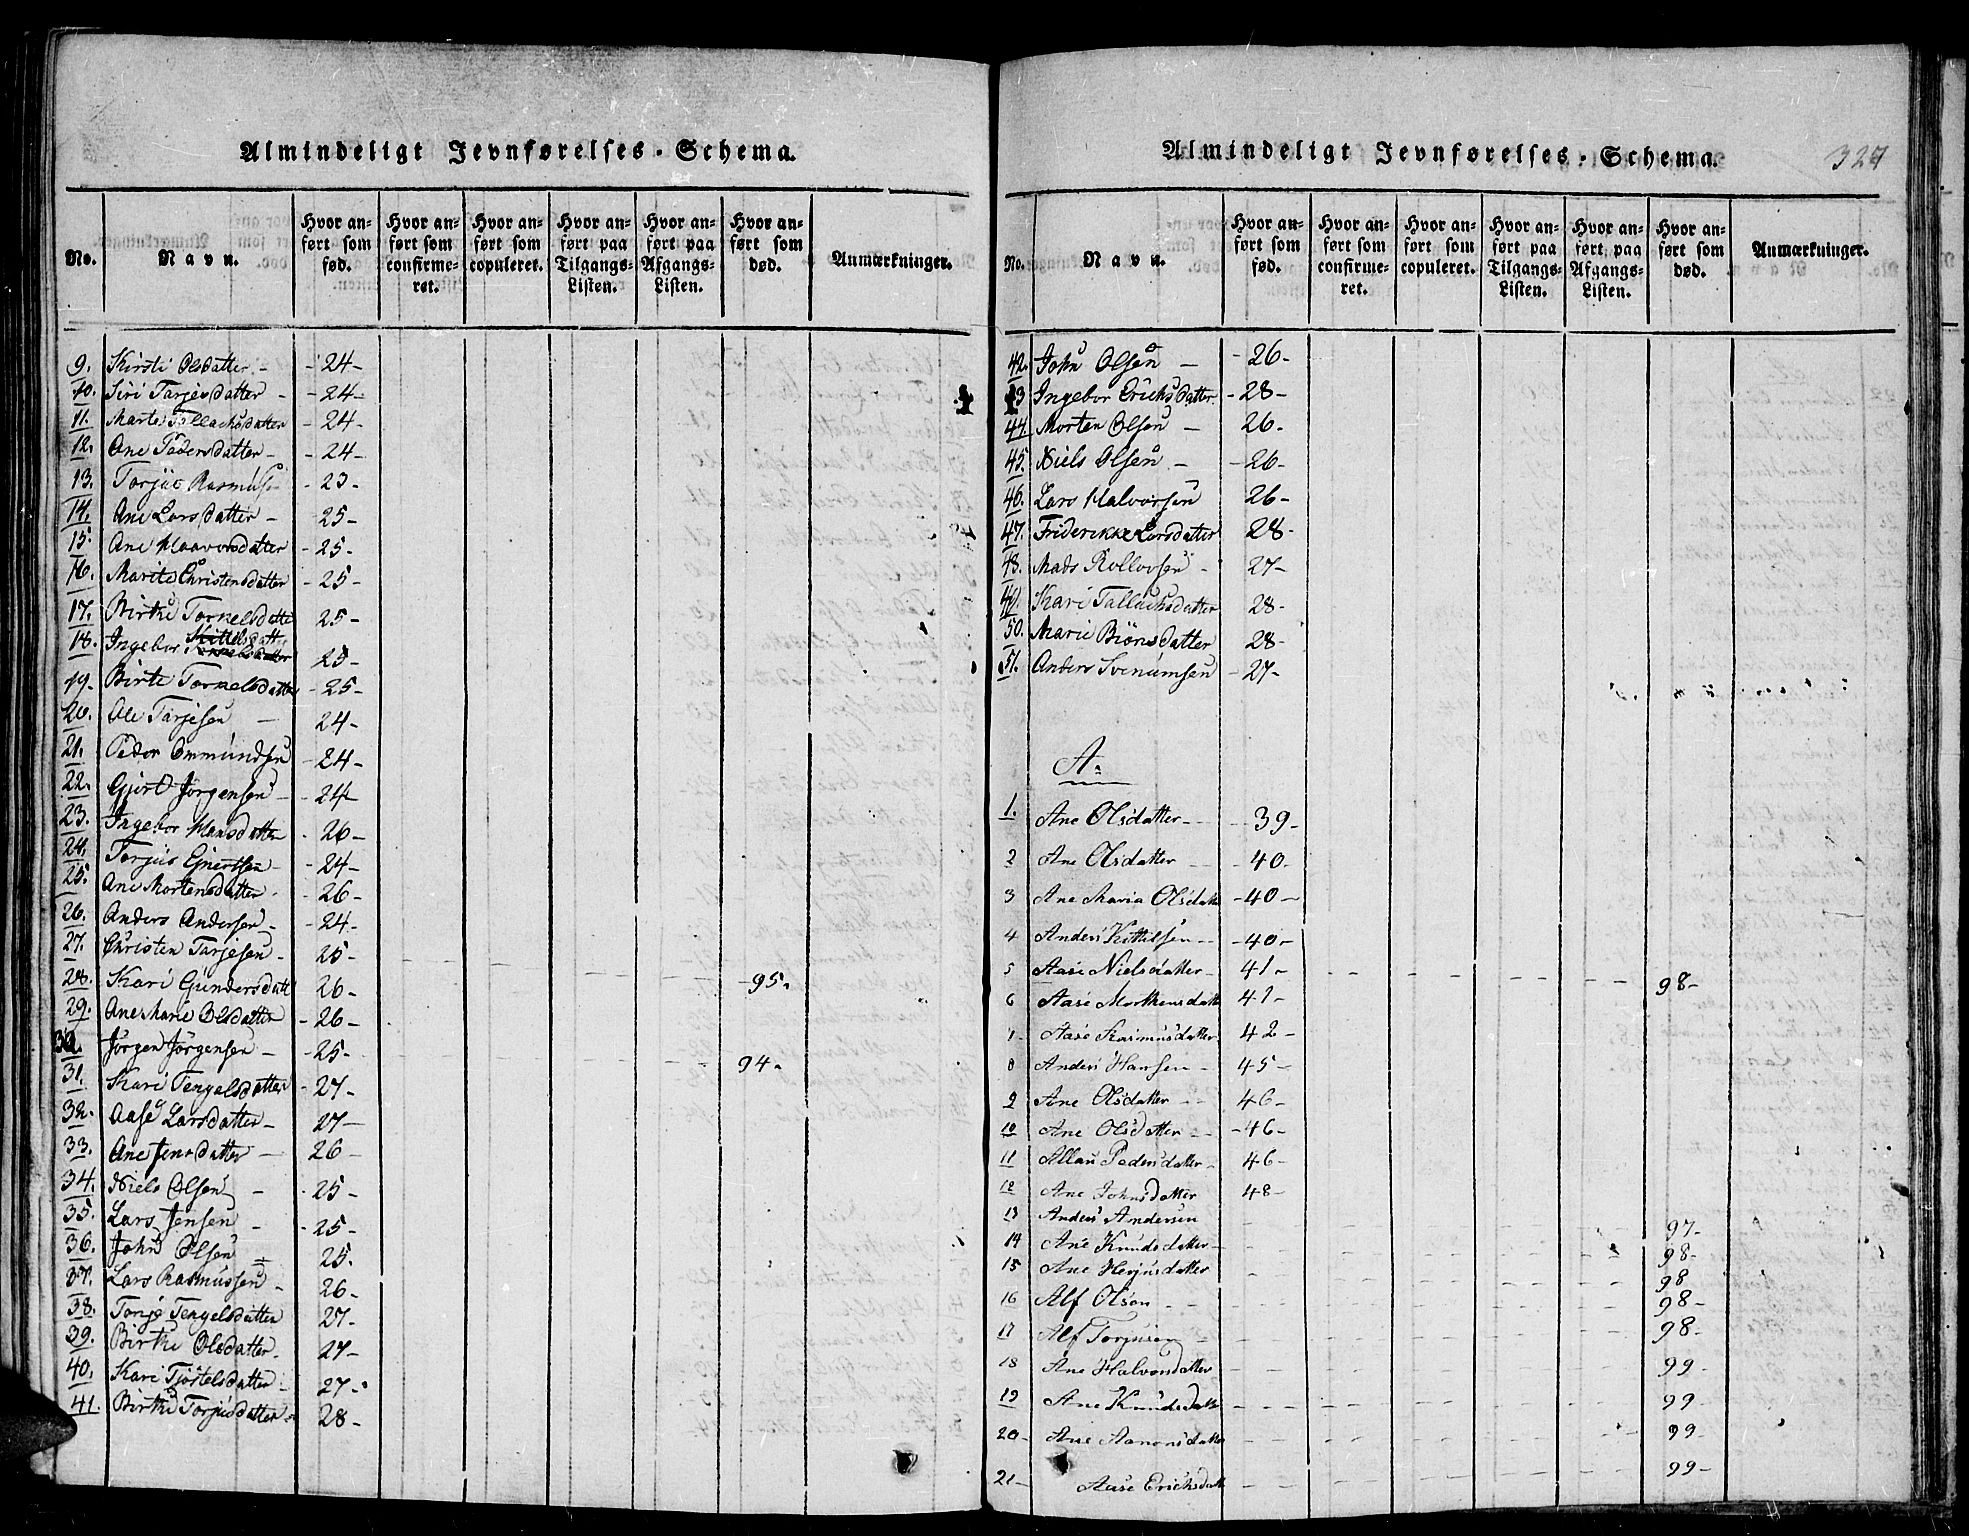 Almindeligt Jevnførelses-Schema.
No. Navn. Hvor anført som fød. Hvor anført som confirmeret. Hvor anført som copuleret. Hvor anført paa Tilgangs-Listen. Hvor anført paa Afgangs-Listen. Hvor anført som død. Anmærkninger.
9. Kirsti Olsdatter - 24-
10. Siri Tarjesdatter - 24-
11. Marte Tallachsdatter - 24
12. Ane Pedersdatter - 24-
13. Torjus Rasmus - 23-
14. Ane Larsdatter - 25-
15. Ane Haavorsdatter - 25-
16. Marite Christensdatter - 25
17. Birthe Torkelsdatte 25-
18. Ingebor Kittelsdatter 25-
19. Birte Torkelsdatter - 25-
20. Ole Tarjesen - 24-
21. Peder Ommundsen - 24-
22. Gjert Jørgensen - 24
23. Ingebor Hansdatter - 26-
24. Torjus Gjertsen - 24-
25. Ane Mortensdatter - 26-
26. Anders Andersen - 24-
27. Christen Tarjesen - 25-
28. Kari Gundersdatt 26- 95.
29. Ane Marie Olsdatter - 26-
30. Jørgen Jørgensen - 25- 94.
31. Kari Tengelsdatter - 27-
32. Aase Larsdatter - 27-
33. Ane Jensdatter - 26-
34. Niels Olsen - 25-
35. Lars Jensen - 25-
36. John Olsen 25.
37. Lars Rasmussen - 26-
38. Tonje Tengelsdatter 27-
39. Birthe Olsdatter - 27-
40. Kari Tjostelsdatter - 27-
41. Birthe Torjusdatter - 28-
Almindeligt Jevnførelses-Schema. 327
No. Navn. Hvor anført som fød. Hvor anført som confirmeret. Hvor anført som copuleret. Hvor anført paa Tilgangs-Listen. Hvor anført paa Afgangs-Listen. Hvor anført som død. Anmærkninger.
42. John Olsen - 26-
43 Ingebor Erichsdatter - 28-
44. Morten Olsen - 26-
45. Niels Olsen - 26-
46. Lars Halvorsen 26-
47. Friderikke Larsdatter 28-
48. Mads Rollovsen - 27-
49. Kari Tallachsdatter 28-
50. Marie Biønsdatter 28-
51. Anders Svenumsen - 27-
A.
1. Ane Olsdatter - 39-
2 Ane Olsdatter - 40-
3 Ane Maria Olsdatt - 40-
4 Anders Kittilsen - 40-
5 Aase Nielsdatter - 41- 98-
6 Aase Morthensdatt 41-
Aase Rasmusdatter 42-
8 Anders Hansen - 45-
9 Ane Olsdatter - 46-
10 Ane Olsdatter - 46-
11 Pedersdatter - 46-
12 Ane Johnsdatter 48-
13 Anders Andersen 97-
14 Ane Knudsdatter - 98-
15 Ane Herjusdatter 98
16 Alf Olsen - 98-
17 Alf Torjusen - 98-
18 Ane Halvorsdatter 99
19 Ane Knudsdatt 99
20- Ane Aanonsdatter 99
21- Aase Erichsdatt 99-